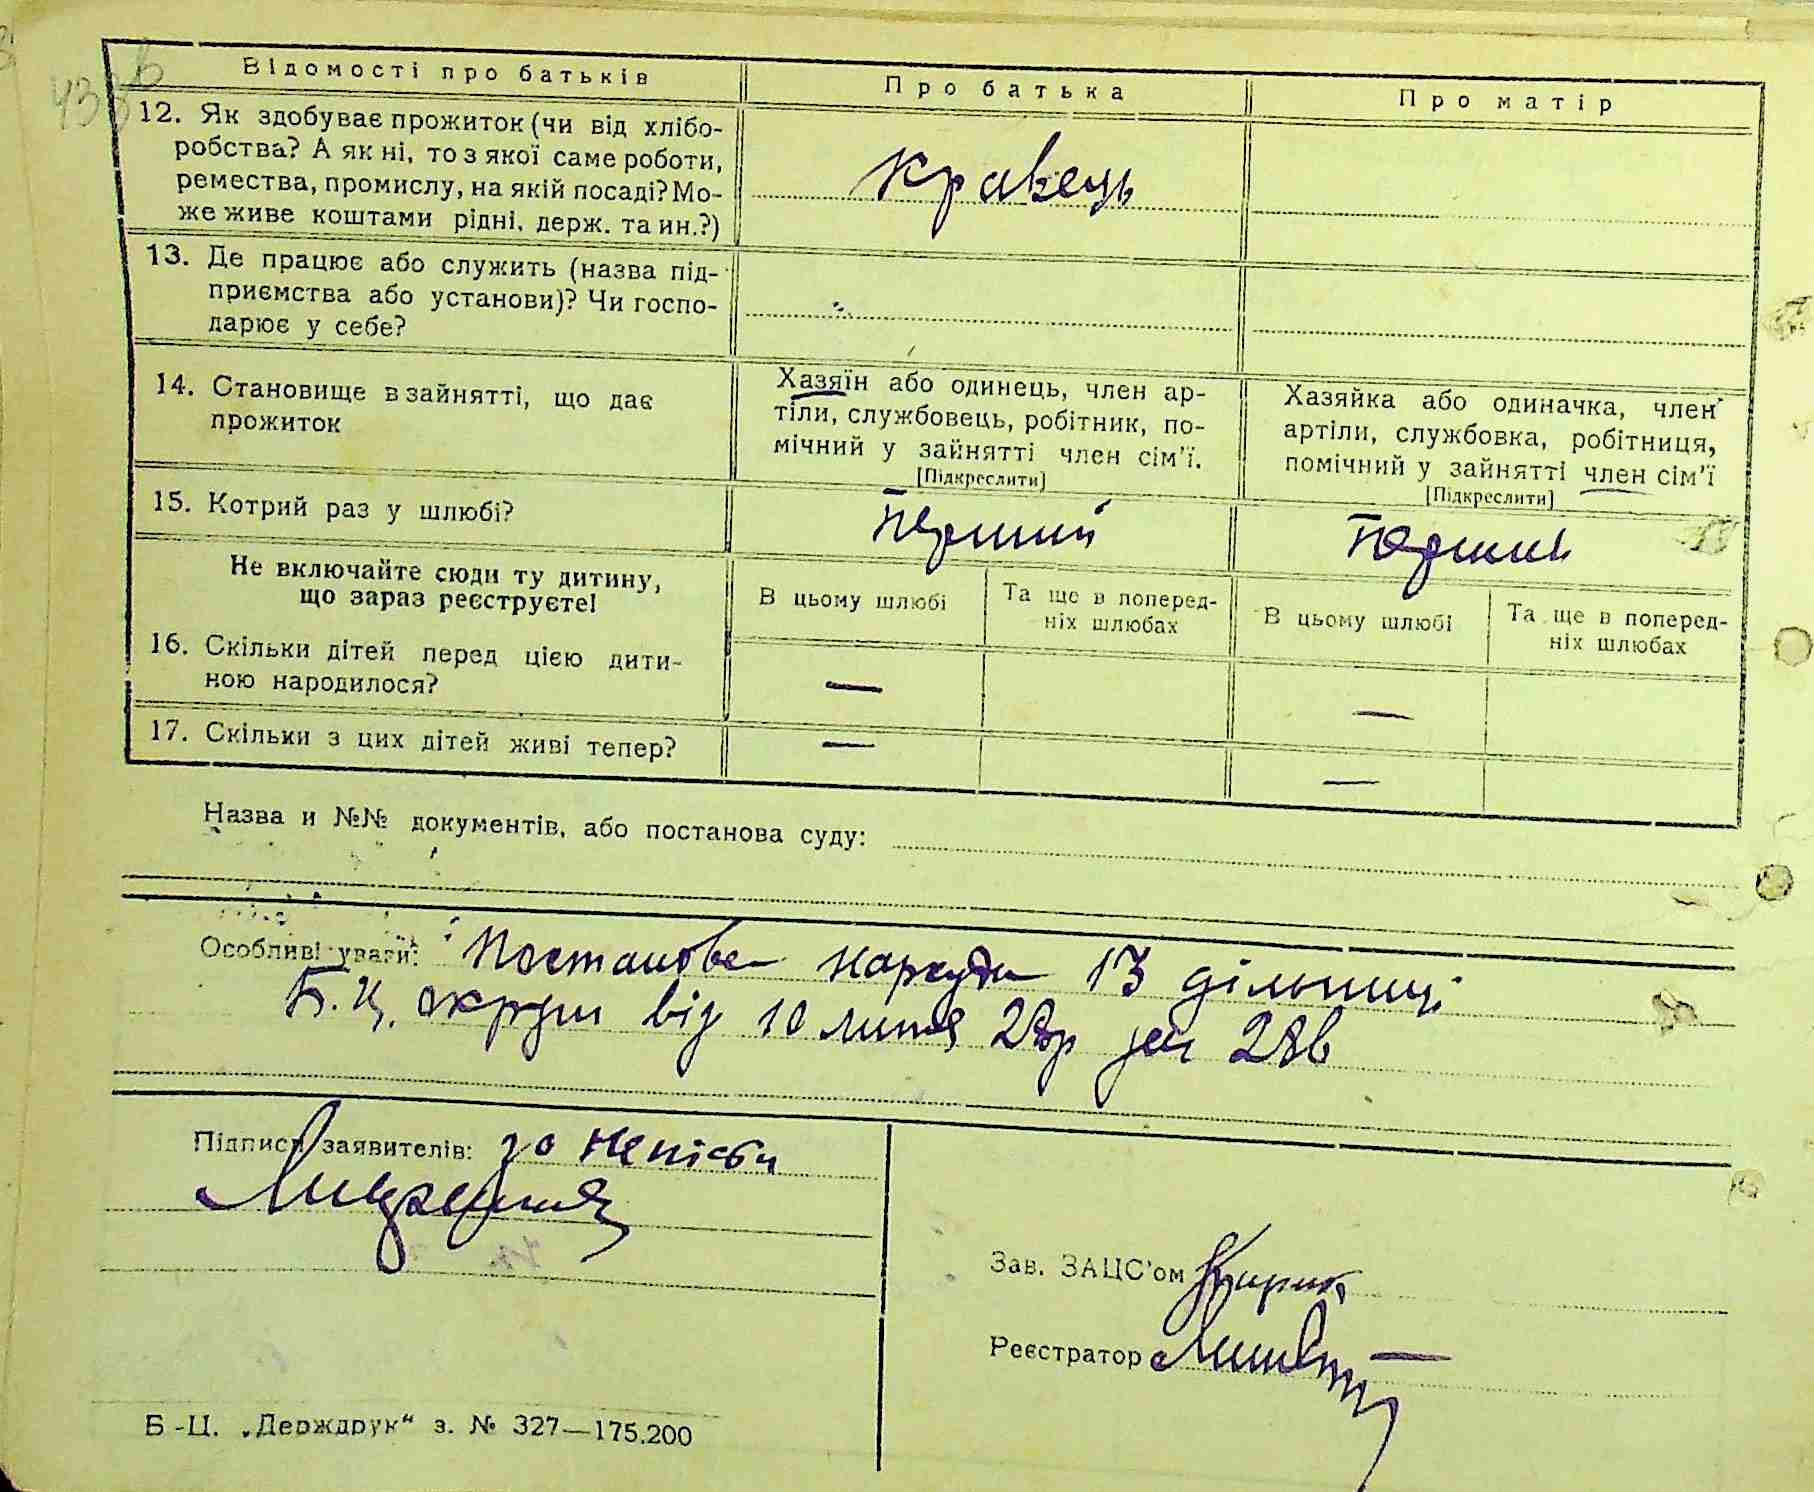 433в
Відомості про батьків
Про батька
Про матір
12. Як здобуває прожиток (чи від хлібо-
робства? А як ні, то з якої саме роботи,
ремества, промислу, на якій посаді? Мо-
же живе коштами рідні, держ. та ин.?)
кравець
13. Де працює або служить (назва під-
приємства або установи)? Чи госпо-
дарює у себе?
14. Становище в зайнятті, що дає
прожиток
Хазяїн або одинець, член ар-
тіли, службовець, робітник, по-
мічний у зайнятті член сім'ї.
[Підкреслити]
Хазяйка або одиначка, член
артіли, службовка, робітниця,
помічний у зайнятті член сім'ї
[Підкреслити]
15. Котрий раз у шлюбі?
Перший
Перший
Не включайте сюди ту дитину,
що зараз реєструєте!
В цьому шлюбі
Та ще в поперед-
ніх шлюбах
В цьому шлюбі
Та ще в поперед-
ніх шлюбах
16. Скільки дітей перед цією дити-
ною народилося?
— —
17. Скільки з цих дітей живі тепер?
— —
Назва и №№ документів, або постанова суду:
Особливі уваги: Постанова нарсуду 13 дільниці
Б.Ц. округи від 10 липня
Підписи заявителів: за неписьм
Зав. ЗАЦС'ом
Реєстратор
Б-Ц. „Держдрук“ з. № 327—175.200